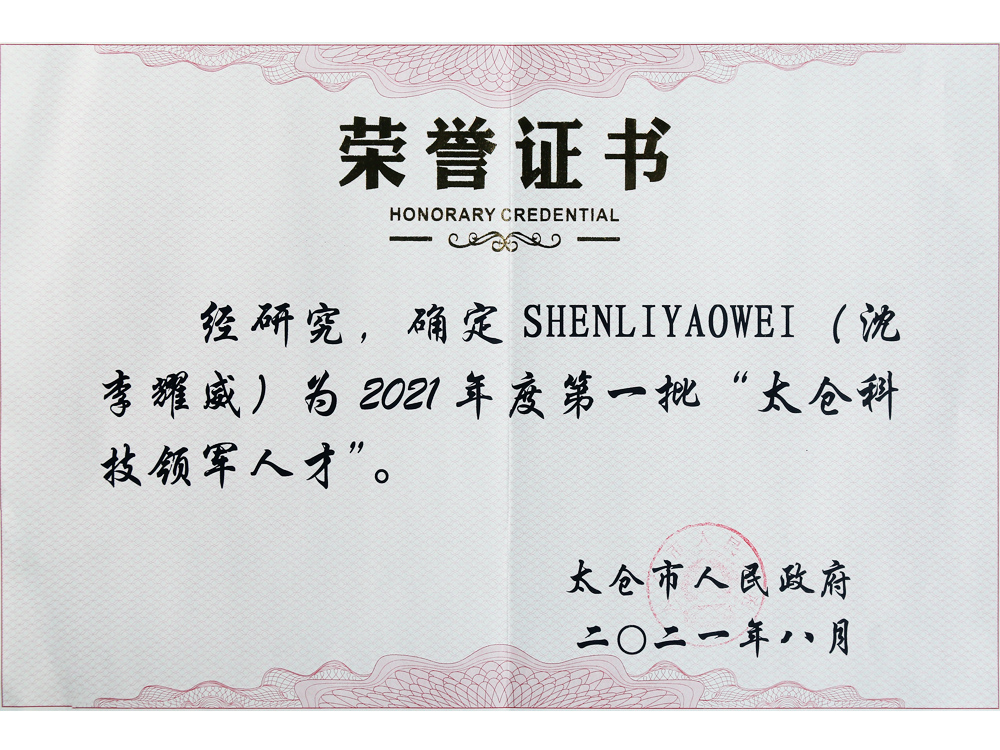 荣誉证书
HONORARY CREDENTIAL
经研究，确定SHENLIYAOWEI（沈
李耀威）为2021年度第一批“太仓科
技领军人才”。
太仓市人民政府
二〇二一年八月